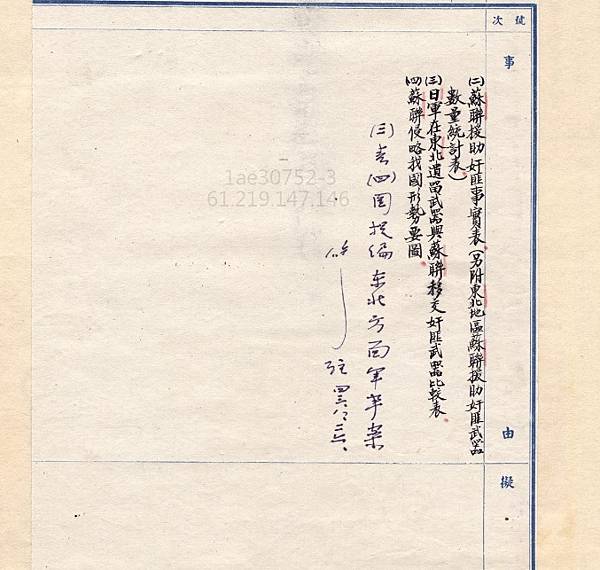 號次
事由
擬
(二)蘇聯援助奸匪事實表(另附東北地區蘇聯援助奸匪武器
數量統計表)
(三)日軍在東北遺留武器與蘇聯移交奸匪武器比較表
(四)蘇聯侵略我國形勢要圖
(三)表(四)圖提編东北方面軍事案
四三、八、二六、
1ae30752-3
61.219.147.146